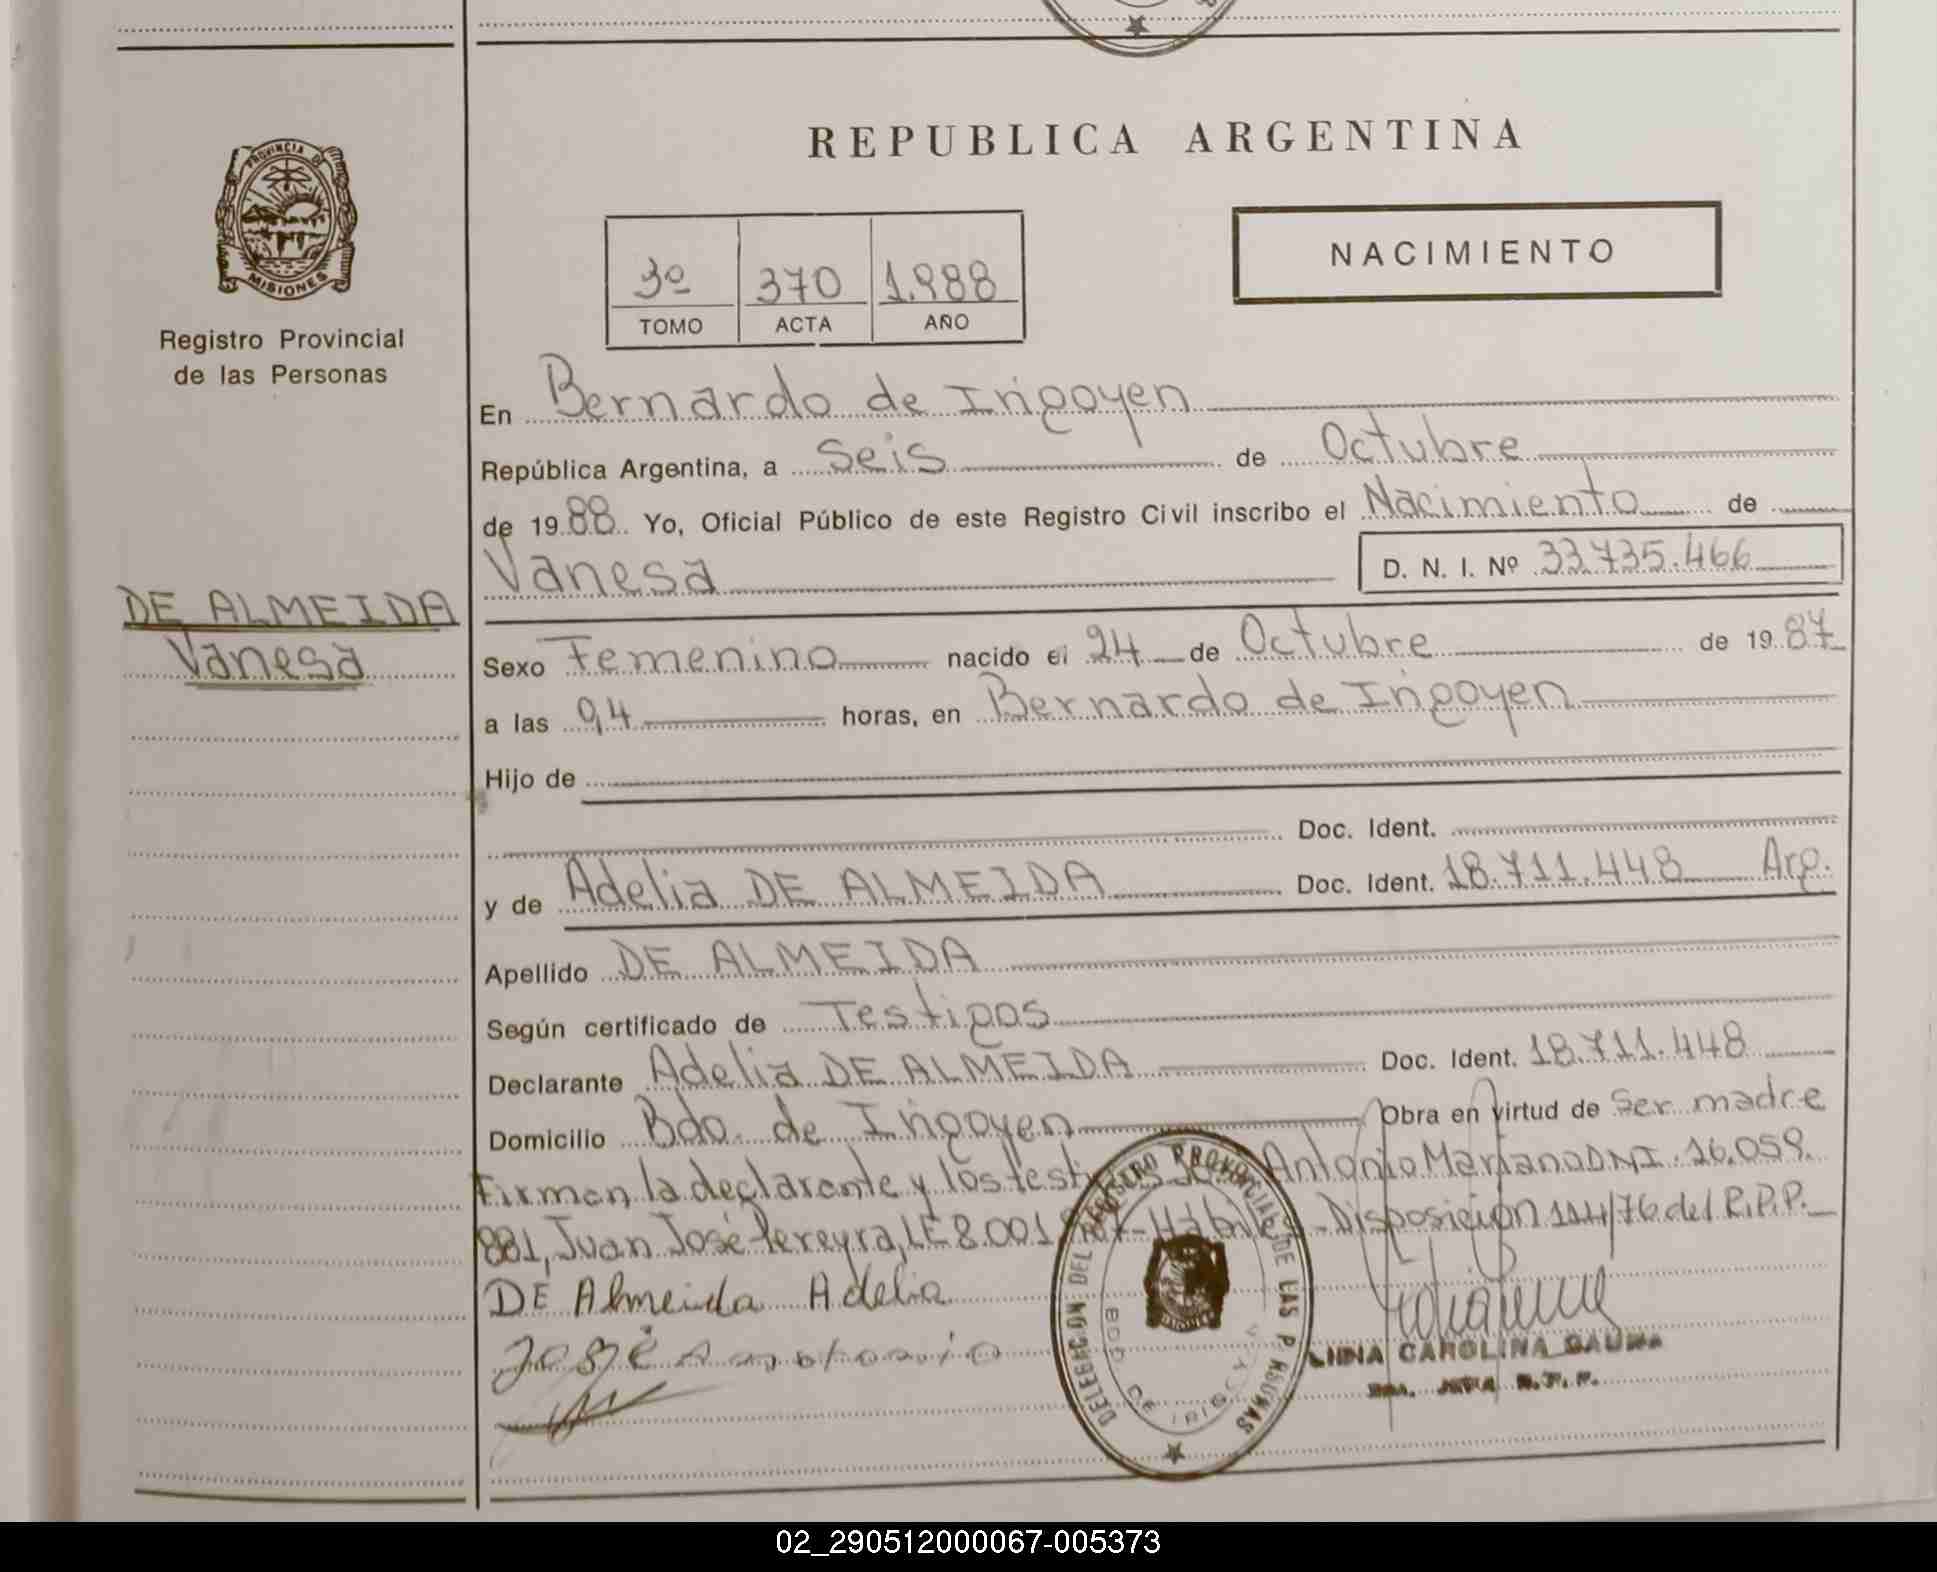 REPUBLICA ARGENTINA
PROVINCIA DE
MISIONES
Registro Provincial
de las Personas
NACIMIENTO
3º 370 1.988
TOMO ACTA AÑO
En Bernardo de Irigoyen
República Argentina, a Seis de Octubre
de 19 88 Yo, Oficial Público de este Registro Civil inscribo el Nacimiento de
Vanesa D. N. I. Nº 33.735.466
DE ALMEIDA
Vanesa
Sexo Femenino nacido el 24 de Octubre de 19 87
a las 04 horas, en Bernardo de Irigoyen
Hijo de
Doc. Ident.
y de Adelia DE ALMEIDA Doc. Ident. 18.711.448 Arg.
Apellido DE ALMEIDA
Según certificado de Testigos
Declarante Adelia DE ALMEIDA Doc. Ident. 18.711.448
Domicilio Bdo. de Irigoyen Obra en virtud de Ser madre
Firman la declarante y los testigos Antonio Mariano DNI. 16.059.
881, Juan José Pereyra, LE 8.001 Hábiles - Disposición 114/76 del R.P.P.
DE Almeida Adelia
DELEGACION DEL REGISTRO PROVINCIAL DE LAS PERSONAS
BDO DE IRIGOYEN
CAROLINA
02_290512000067-005373